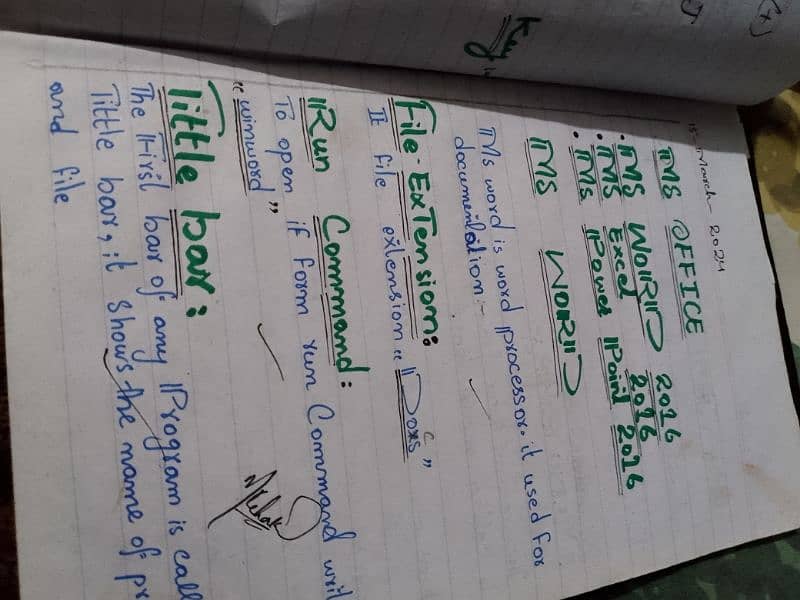 15-March-2024
MS OFFICE
• MS WORD 2016
• MS Excel 2016
• MS Power Point 2016
MS WORD
Ms word is word processor. it used for
documentation.
File Extension:
It file extension " Docxs "
Run Command:
To open if form run Command writ
" winword "
Tittle bar:
The First bar of any Program is call
Tittle bar, it shows the name of pr
and file
Key